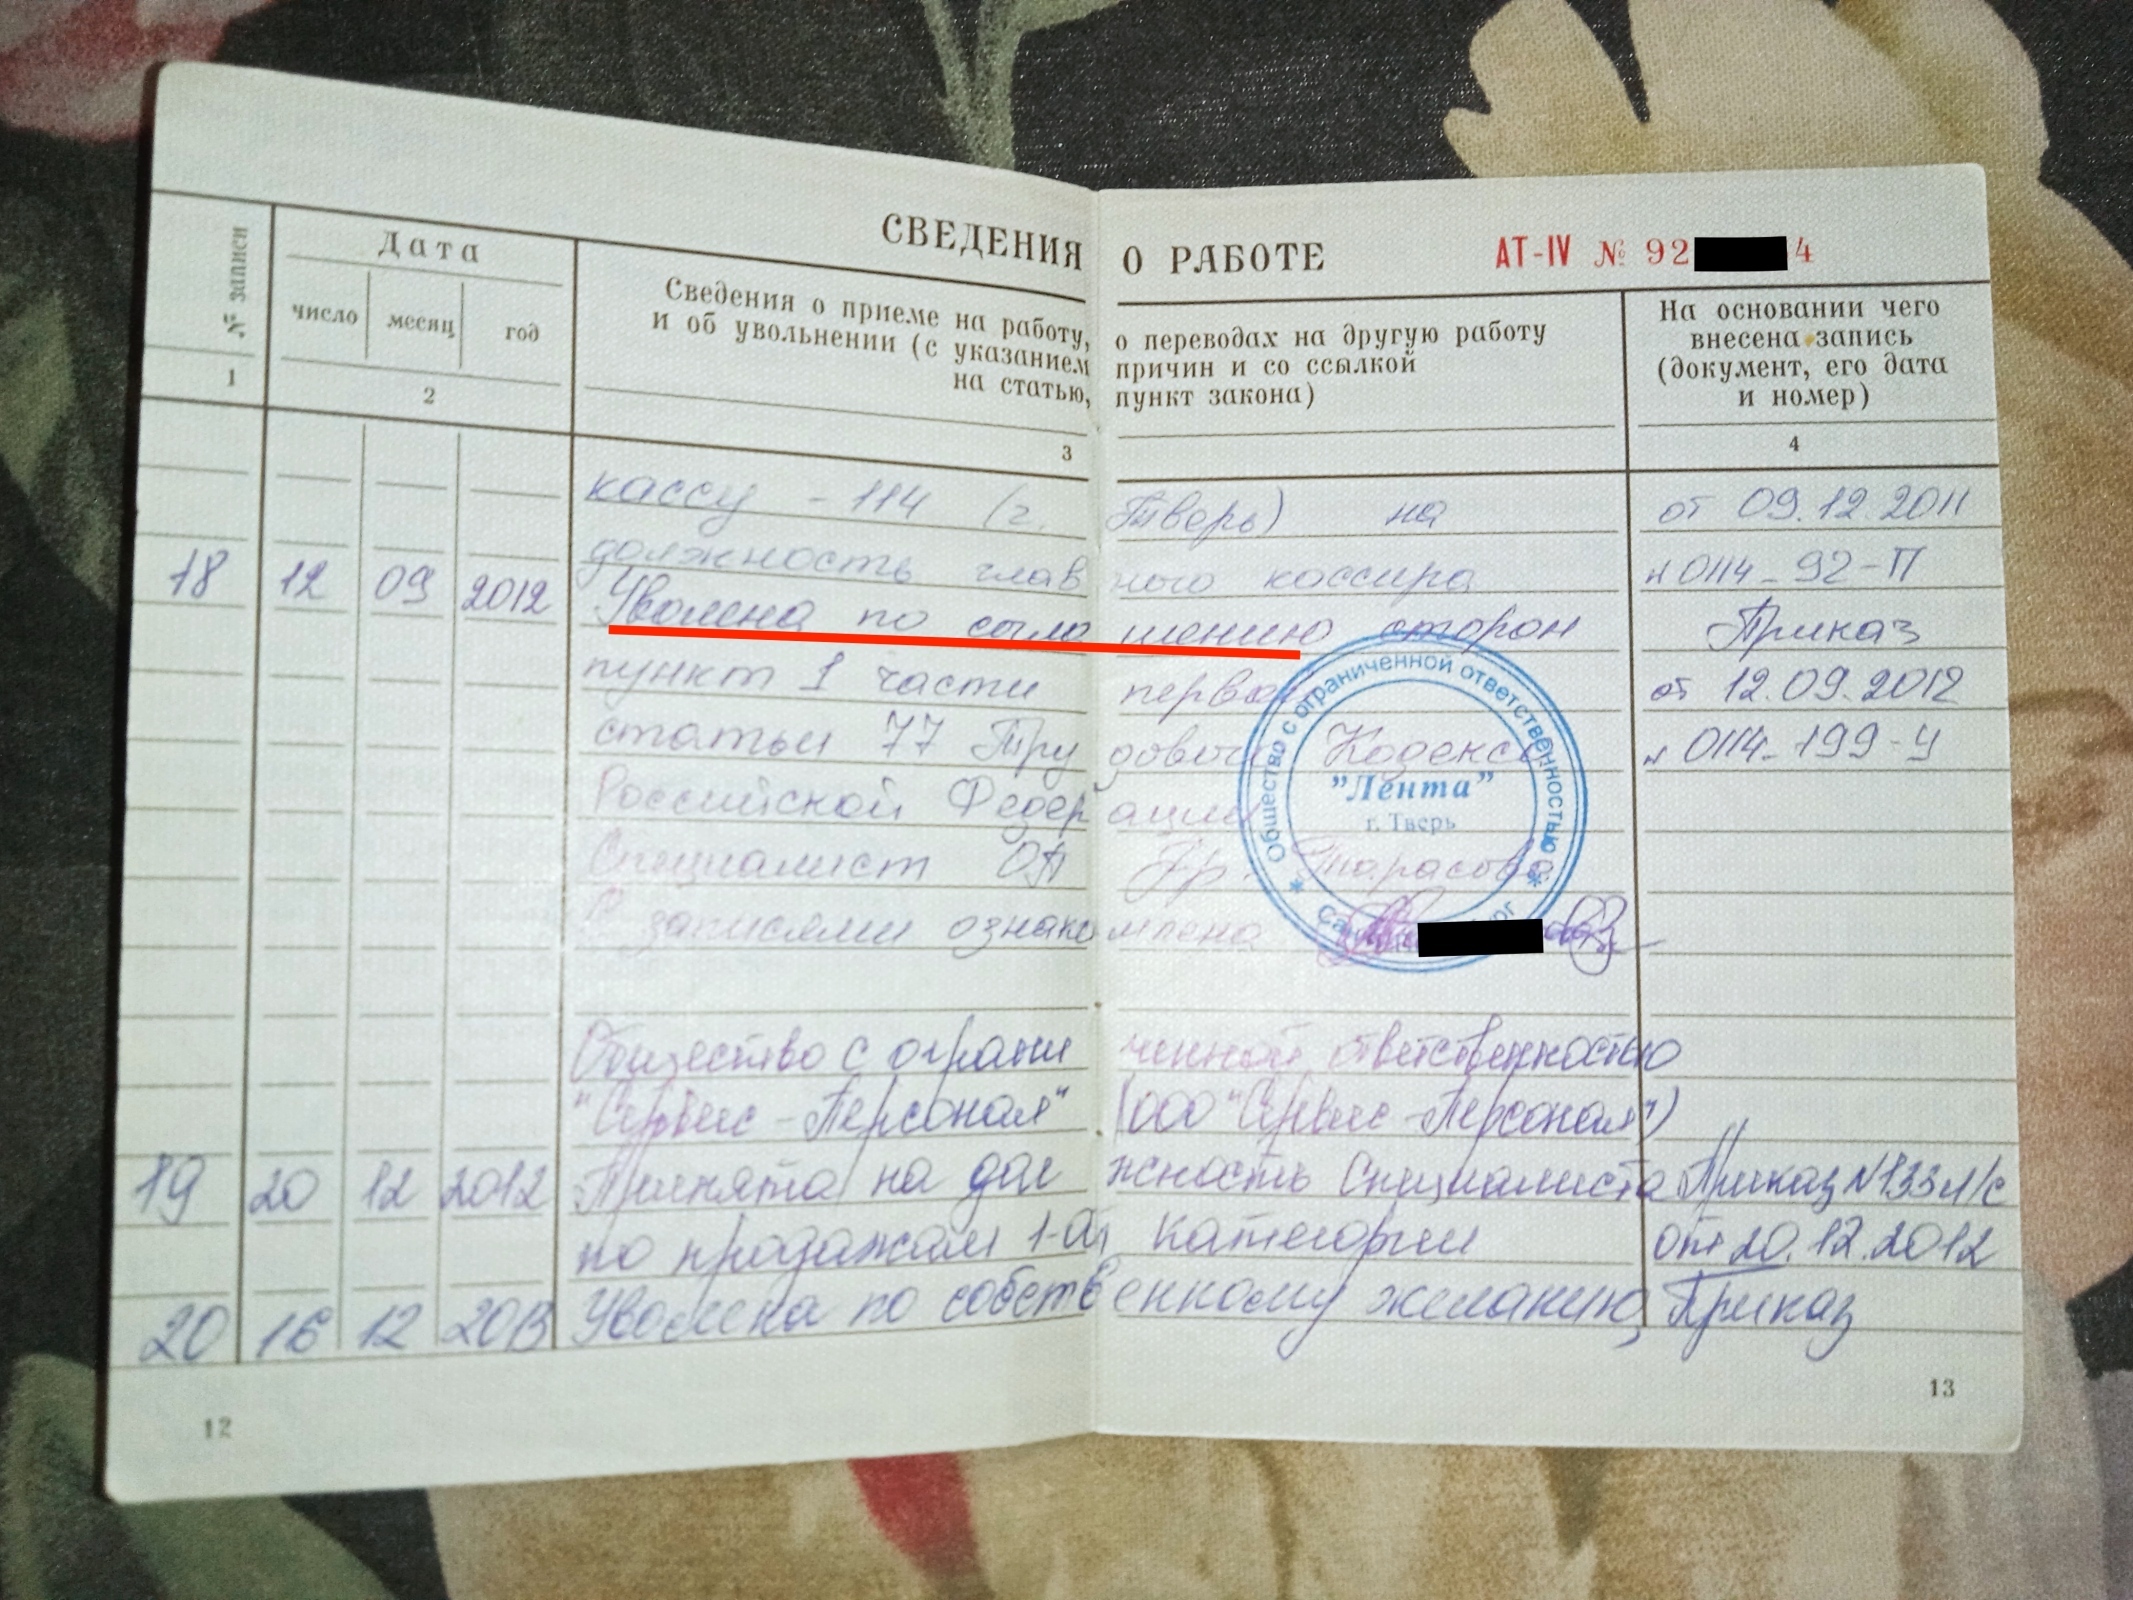 СВЕДЕНИЯ О РАБОТЕ АТ-IV № 92 4
№ записи
Дата
число месяц год
Сведения о приеме на работу, о переводах на другую работу
и об увольнении (с указанием причин и со ссылкой
на статью, пункт закона)
На основании чего
внесена запись
(документ, его дата
и номер)
1 2 3 4
кассу - 114 (г. Тверь) на от 09.12.2011
должность главного кассира н 0114-92-П
18 12 09 2012 Уволена по соглашению сторон Приказ
пункт 1 части первой от 12.09.2012
статьи 77 Трудового Кодекса н 0114-199-У
Российской Федерации
Специалист ОП Тарасова
С записями ознакомлена
Общество с ограниченной ответственностью
"Лента"
г. Тверь
Общество с ограниченной ответственностью
"Сервис-Персонал" (ООО "Сервис-Персонал")
19 20 12 2012 Принята на должность Специалиста Приказ N133л/с
по продажам 1-ой категории от 20.12.2012
20 16 12 2013 Уволена по собственному желанию, Приказ
12 13